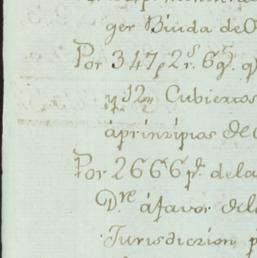 ger Biuda de
Por 347p 2rs. 6g.
y 12 Cubiertos
áprinzipios de
Por 2666ps. dela
Dre áfavor del
Jurisdiczion p